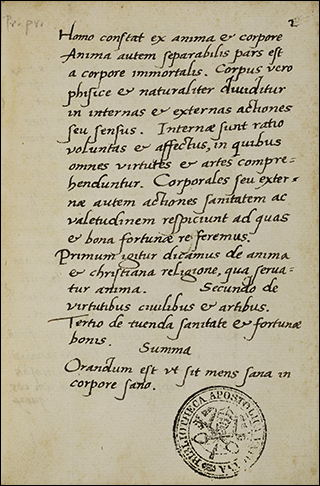 Pr. pr.
2
Homo constat ex anima & corpore
Anima autem separabilis pars est
a corpore immortalis. Corpus vero
phisice & naturaliter diuiditur
in internas & externas actiones
seu sensus. Internæ sunt ratio
voluntas & affectus, in quibus
omnes virtutes & artes compre-
henduntur. Corporales seu exter-
næ autem actiones sanitatem ac
valetudinem respiciunt ad quas
& bona fortunæ referemus.
Primum igitur dicamus de anima
& christiana religione, qua serua-
tur anima. Secundo de
virtutibus ciuilibus & artibus.
Tertio de tuenda sanitate & fortunæ
bonis.
Summa
Orandum est vt sit mens sana in
corpore sano.
BIBLIOTHECA APOSTOLICA